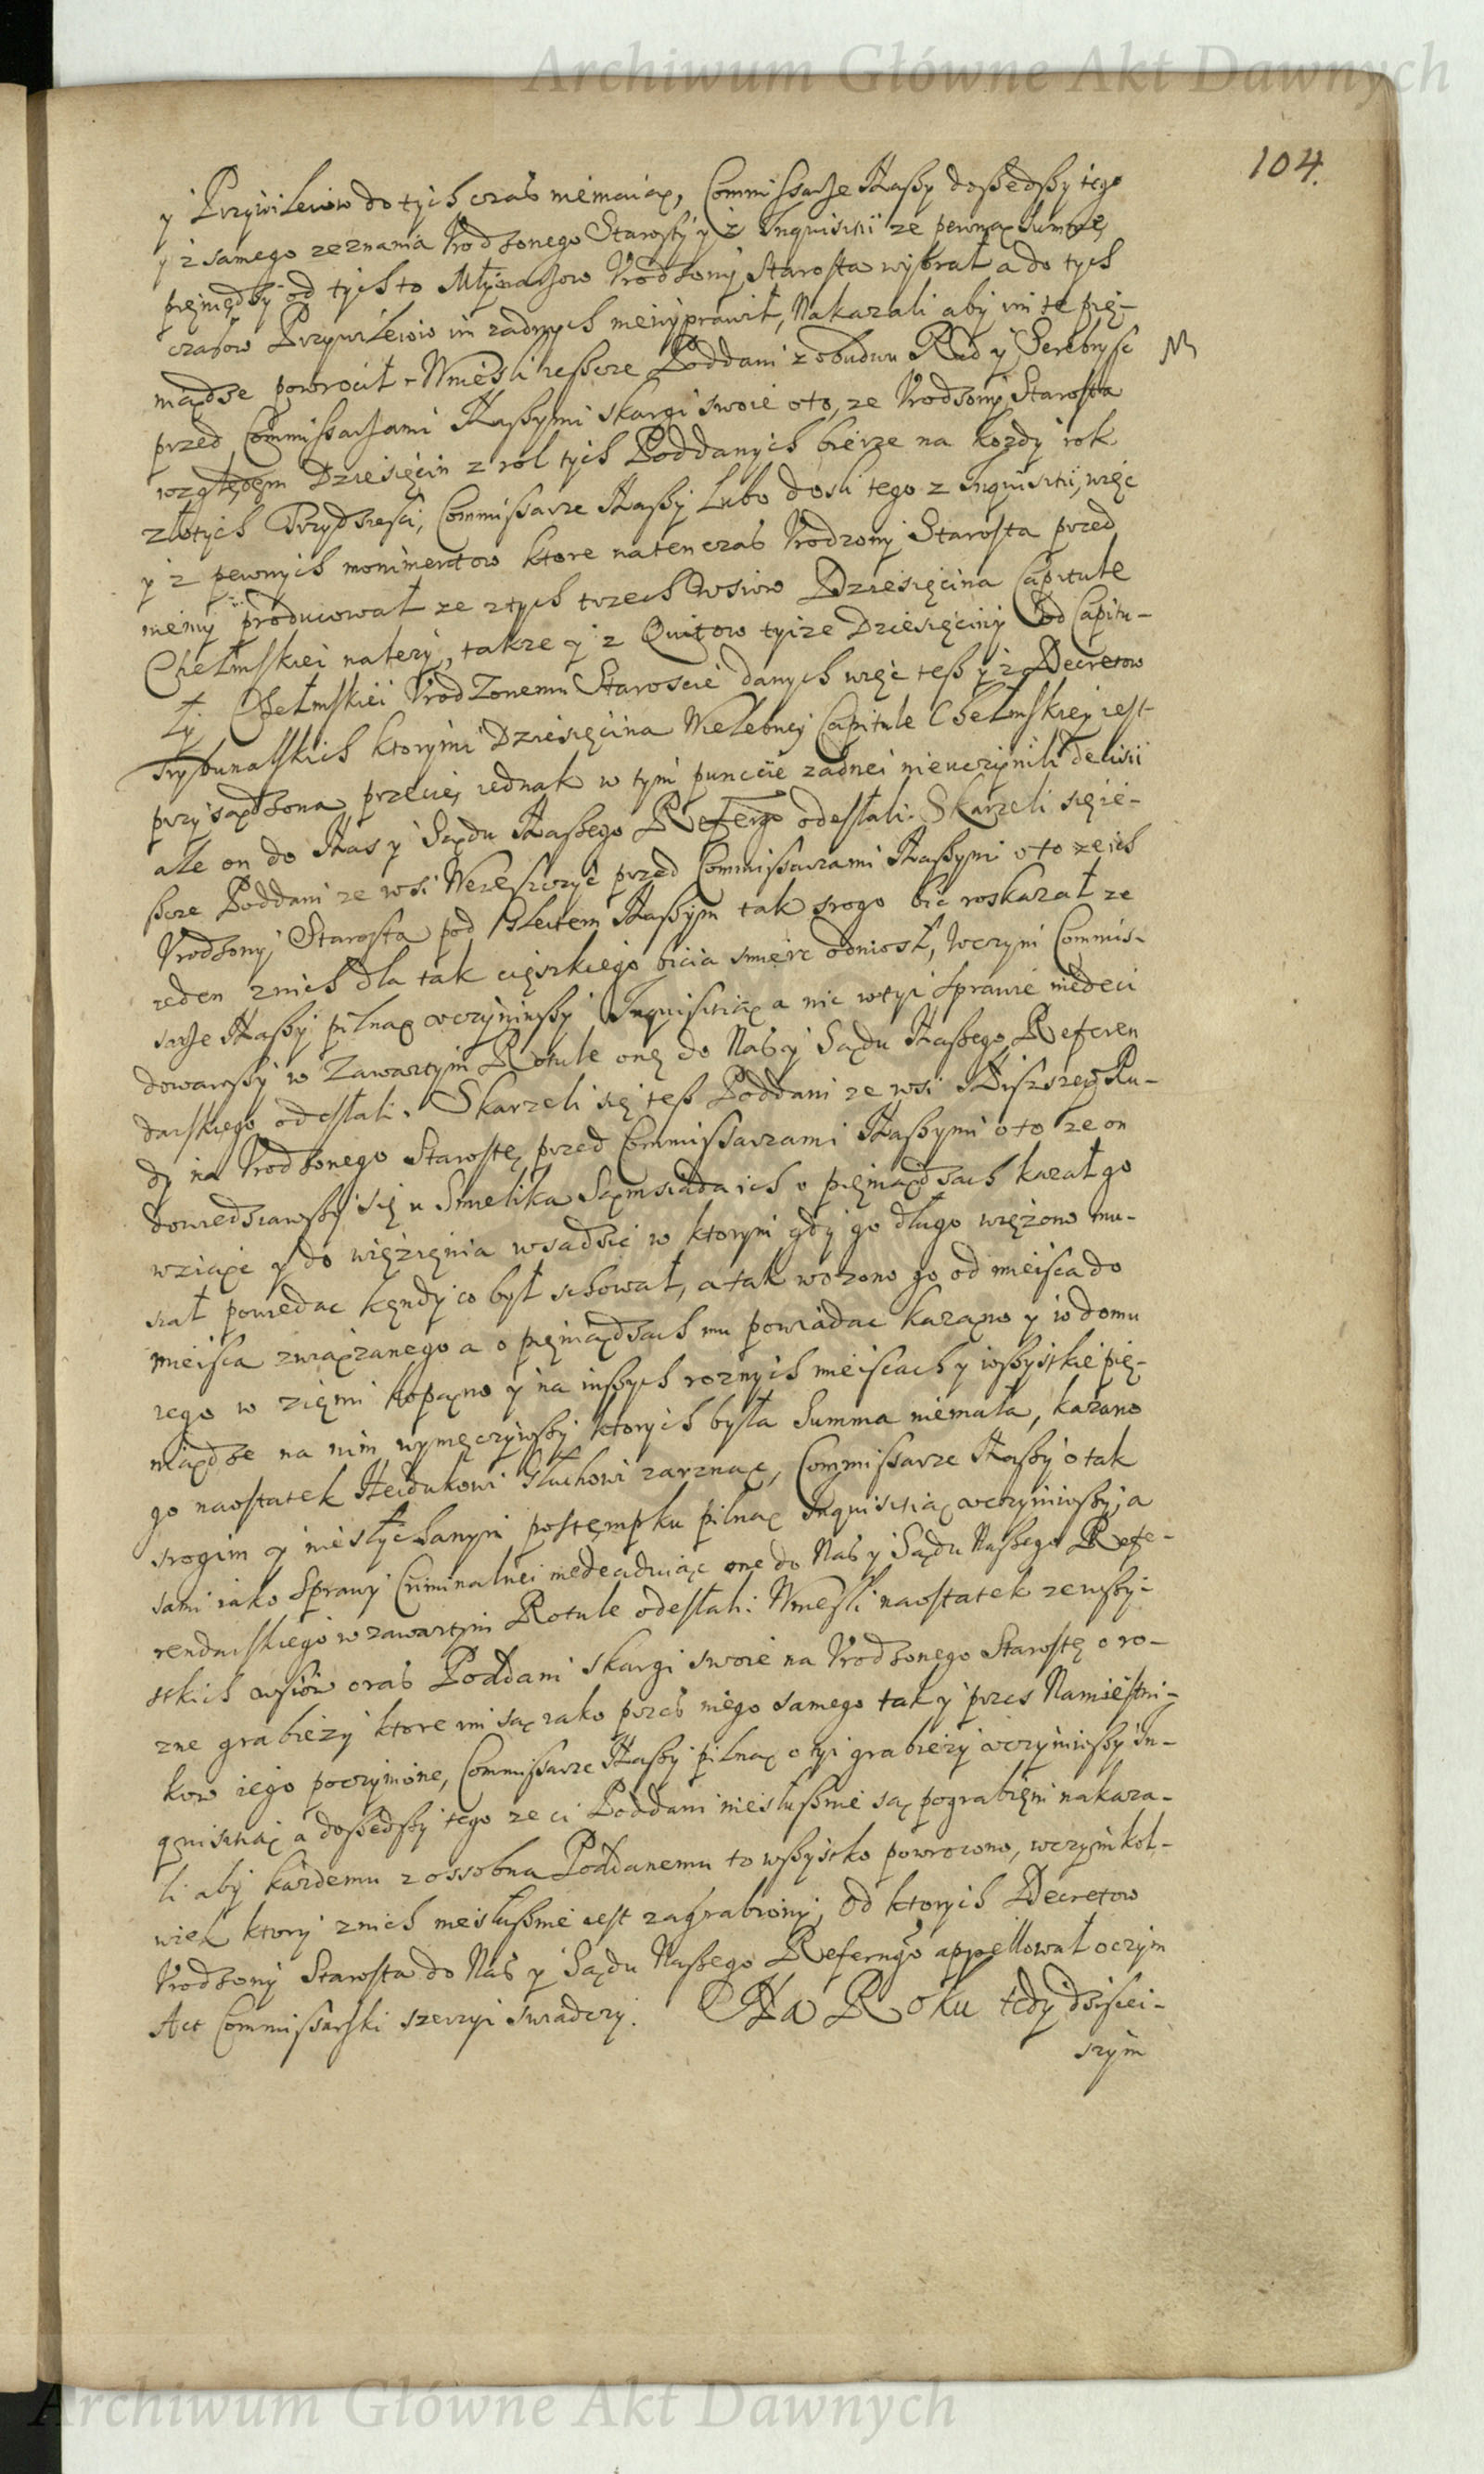 Archiwum Główne Akt Dawnych
104.
y Przywileiow do tych czas niemaiąc, Commissarze Naszy doszedszy tego
y z samego zeznania Urodzonego Starosty y z Inquisitii ze pewną Summę
pięniędzy od tych to Młynarzow Urodzony Starosta wybrał a do tych
czasow Przywileiow im zadnych niewyprawił, Nakazali aby im te pię-
niądze powrocił. Wniesli ieszcze Poddani z obudwu Rud y Serebryść
przed Commissarzami Naszymi skargi swoie o to, ze Urodzony Starosta
względem Dziesięcin z rol tych Poddanych bierze na kozdy rok
złotych Trzydziesci, Commissarze Naszy lubo dosli tego z Inquisitii, więc
y z pewnych monimentow ktore natenczas Urodzony Starosta przed
niemi producował ze z tych trzech wsiow Dziesięcina Capitule
Chełmskiei nalezy, takze y z Quitow tyize Dziesięciny od Capitu-
ły Chełmskiei Urodzonemu Staroscie danych więc tesz y z Decretow
Trybunalskich ktorymi Dziesięcina Wielebney Capitule Chełmskiey iest
przysądzona przecię iednak w tym punccie zadnei nieuczynili decisii
ale on do Nas y Sądu Naszego Referego odesłali. Skarzeli się ie-
szcze Poddani ze wsi Wereszczyc przed Commissarzami Naszymi o to ze ich
Urodzony Starosta pod Gleitem Naszym tak srogo bic roskazał ze
ieden z nich dla tak cięszkiego bicia smierc odniosł, Wczym Commis-
sarze Naszy pilną uczyniwszy Inquisitią a nic wtyi Sprawie niedeci
dowawszy w Zawartym Rotule onę do Nas y Sądu Naszego Referen
darskiego odesłali. Skarzeli się tesz Poddani ze wsi Niszszey Ru-
dy na Urodzonego Starostę przed Commissarzami Naszymi o to ze on
dowiedziawszy się u Smelika Sąmsiada ich o pięniądzach kazał go
wziąźc y do więzięnia wsadzic w ktorym gdy go długo więzono mu-
siał powiedac kęndy co był schował, a tak wozono go od mieisca do
mieisca związanego a o pięniądzach mu powiadac kazano y w domu
iego w ziemi kopano y na inszych roznych mieiscach y wszystkie pię-
niądze na nim wymęczywszy ktorych była Summa niemała, kazano
go naostatek Heidukowi Głuchowi zarznąc, Commissarze Naszy o tak
srogim y niesłychanym postęmpku pilną Inquisitią uczyniwszy, a
sami iako Sprawy Criminalnei niedeciduiąc one do Nas y Sądu Naszego Refe-
rendarskiego w zawartym Rotule odesłali. Wniesli naostatek ze wszy-
stkich wsiow oras Poddani skargi swoie na Urodzonego Starostę o ro-
zne grabiezy ktore im są iako przes niego samego tak y przes Namiestni-
kow iego poczynione, Commissarze Naszy pilną o tyi grabiezy uczyniwszy In-
quisitią a doszedszy tego ze ci Poddani niesłusznie są pograbięni nakaza-
li aby kazdemu z ossobna Poddanemu to wszystko powrocono, wczymkol-
wiek ktory z nich niesłusznie iest zagrabiony, Od ktorych Decretow
Urodzony Starosta do Nas y Sądu Naszego Refernego appellował o czym
Act Commissarski szerzyi swiadczy. Na Roku tedy dzisiei-
szym
Archiwum Główne Akt Dawnych